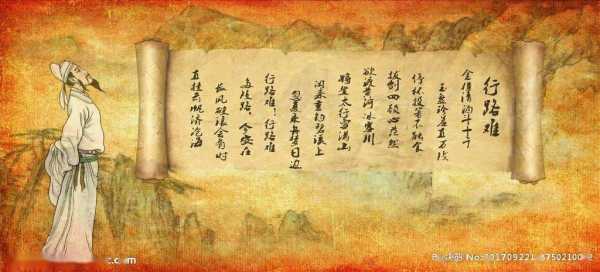 行路难
金樽清酒斗十千
玉盘珍羞直万钱
停杯投箸不能食
拔剑四顾心茫然
欲渡黄河冰塞川
将登太行雪满山
闲来垂钓碧溪上
忽复乘舟梦日边
行路难！行路难
多歧路，今安在
长风破浪会有时
直挂云帆济沧海